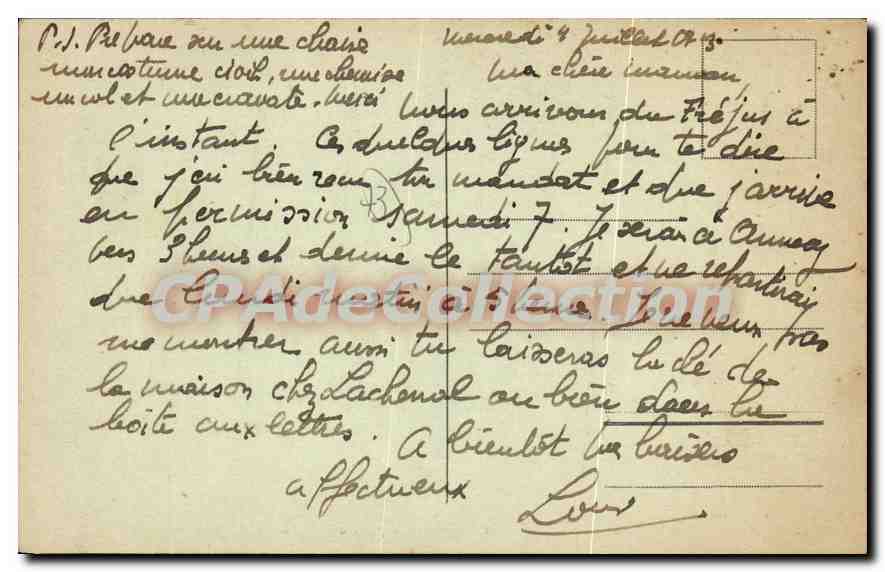 Mercredi 4 Juillet
Ma chère maman,
Nous arrivons du Fréjus à
l'instant. Ces quelques lignes pour te dire
que j'ai bien reçu ton mandat et que j'arrive
en permission samedi 7. Je serai à Annecy
vers 3 heures et demie le tantôt et ne repartirai
que lundi matin à 5 heures. Je ne veux pas
me montrer aussi tu laisseras la clé de
la maison chez Lachenal ou bien dans la
boîte aux lettres. A bientôt tes baisers
affectueux
Louis
P.S. Prépare sur une chaise
mon costume civil, une chemise
un col et une cravate. Merci
CPADeCollection